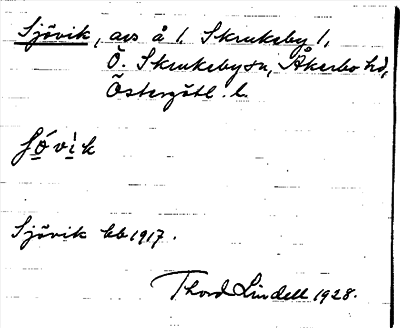 Sjövik, avs å 1. Skruksby 1,
Ö. Skrukeby sn, Åkerbo hd,
Östergötl. l.
Sjövik kb 1917.
Thord Lindell 1928.